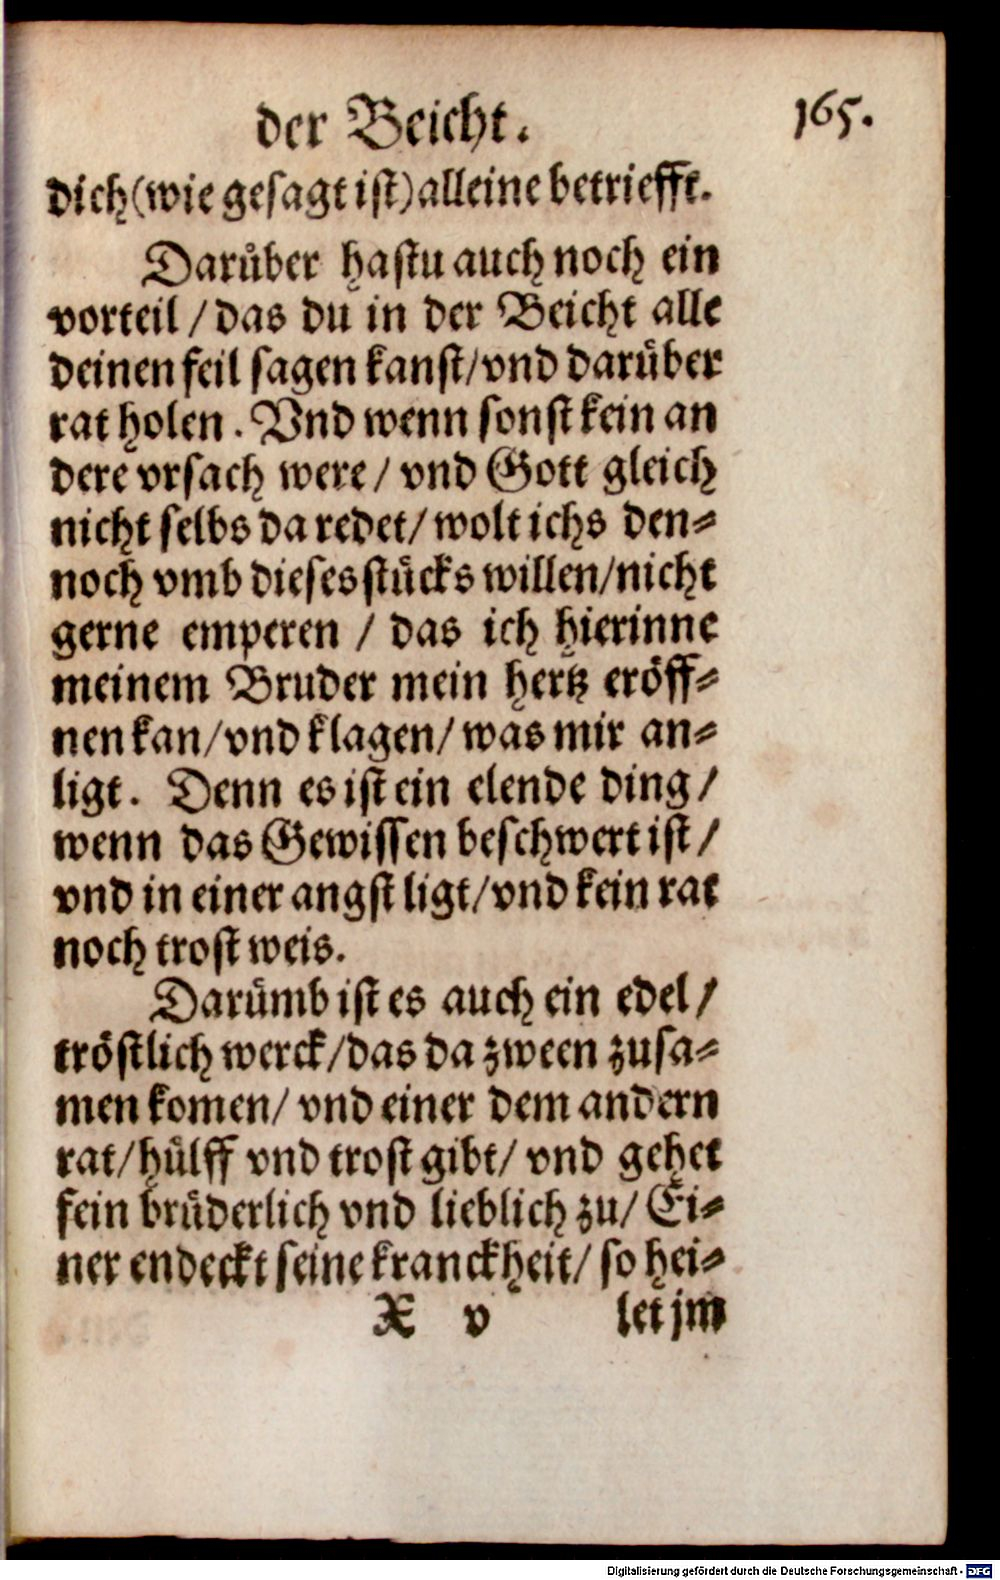 der Beicht.
165.
dich (wie gesagt ist) alleine betriefft.
Darüber hastu auch noch ein
vorteil / das du in der Beicht alle
deinen feil sagen kanst / vnd darüber
rat holen. Vnd wenn sonst kein an
dere vrsach were / vnd Gott gleich
nicht selbs da redet / wolt ichs den-
noch vmb dieses stücks willen / nicht
gerne emperen / das ich hierinne
meinem Bruder mein hertz eröff-
nen kan / vnd klagen / was mir an-
ligt. Denn es ist ein elende ding /
wenn das Gewissen beschwert ist /
vnd in einer angst ligt / vnd kein rat
noch trost weis.
Darümb ist es auch ein edel /
tröstlich werck / das da zween zusa-
men komen / vnd einer dem andern
rat / hülff vnd trost gibt / vnd gehet
fein brüderlich vnd lieblich zu / Ei-
ner endeckt seine kranckheit / so hei-
X v
let jm
Digitalisierung gefördert durch die Deutsche Forschungsgemeinschaft - DFG